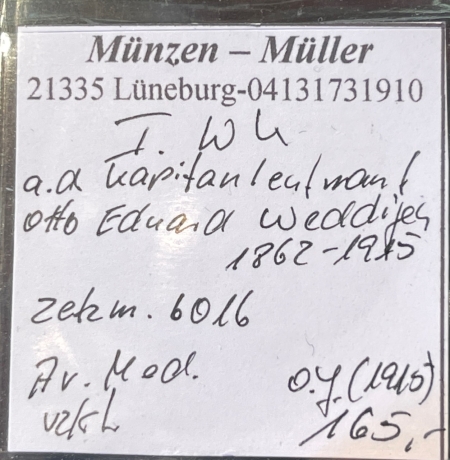 Münzen – Müller
21335 Lüneburg-04131731910
I. Wk
a.d Kapitänleutnant
Otto Eduard Weddigen
1862-1915
Zetzm. 6016
Ar. Med. o.J. (1915)
vz/st 165,-